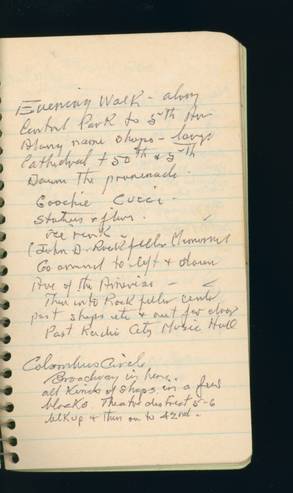 Evening Walk - along
Central Park to 5th Ave
Along name shops - large
Cathedral + 50th + 5th
Down the promenade.
Goochie Cucci -
Statues + flwrs.
ice rink -
(John D. Rockfeller Monument
Go around to left + down
Ave of the Americas -
Then into Rockfeller center
past shops etc + out far door
Past Radio City Music Hall
Columbus Circle,
Broadway in here..
all kinds of shops in a few
blocks Theatre district 5-6
blk up + then on to 42nd.